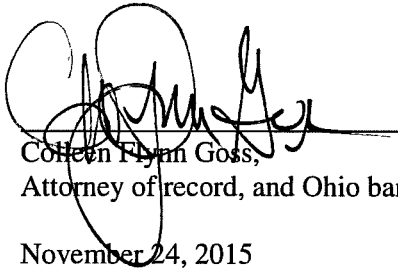 Colleen Flynn Goss,
Attorney of record, and Ohio bar
November 24, 2015